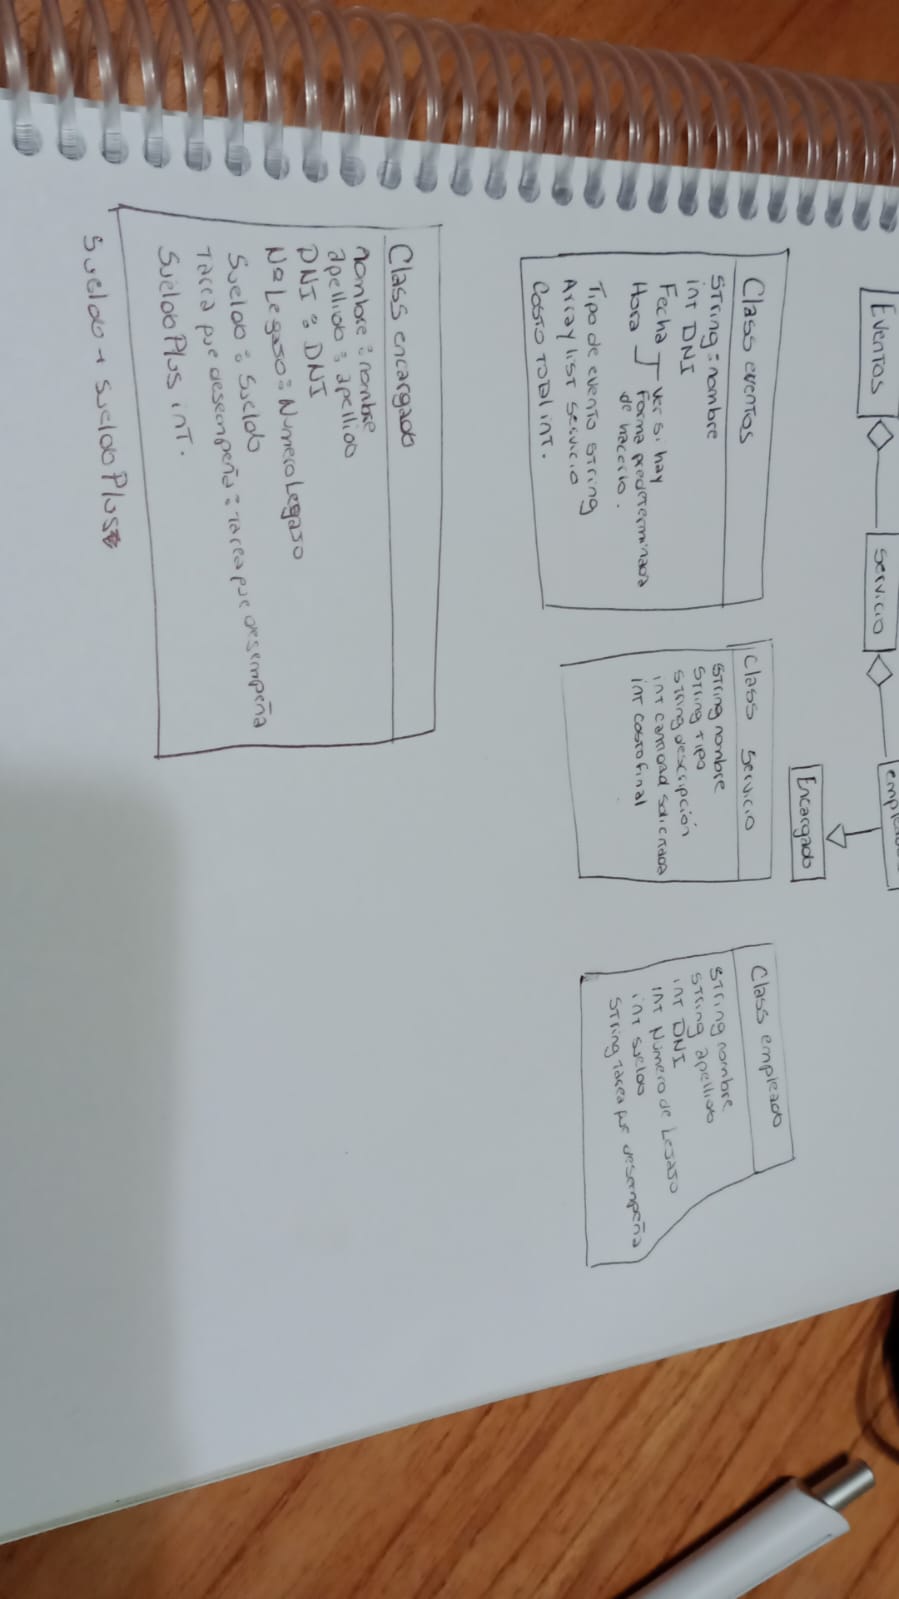 Eventos
Servicio
Encargado
Class eventos
String = nombre
int DNI
Fecha
Hora
ver si hay
forma predeterminada
de hacerlo.
Tipo de evento string
Array list servicio
Costo total int.
Class servicio
string nombre
string tipo
string descripción
int cantidad solicitada
int costo final
Class empleado
string nombre
string apellido
int DNI
int Número de Legajo
int sueldo
string tarea que desempeña
Class encargado
nombre = nombre
apellido = apellido
DNI = DNI
No Legajo = Numero Legajo
Sueldo = Sueldo
tarea que desempeña = tarea que desempeña
Sueldo Plus int.
Sueldo + sueldo Plus